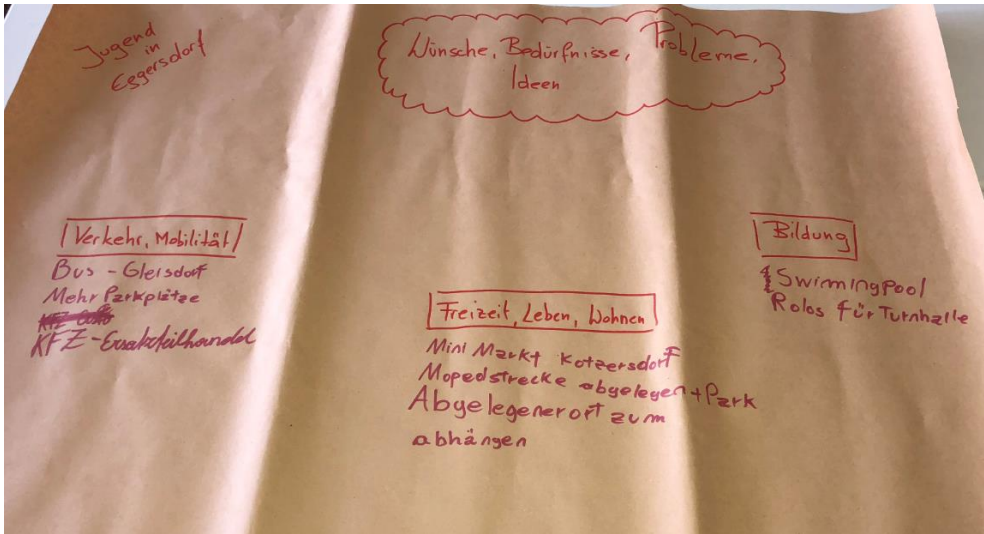 Jugend
in
Eggersdorf
Wünsche, Bedürfnisse, Probleme,
Ideen
Verkehr, Mobilität
Bus - Gleisdorf
Mehr Parkplätze
KFZ
KFZ-Ersatzteilhandel
Freizeit, Leben, Wohnen
Mini Markt Kotzersdorf
Mopedstrecke abgelegen + Park
Abgelegener ort zum
abhängen
Bildung
Swimmingpool
Rolos für Turnhalle